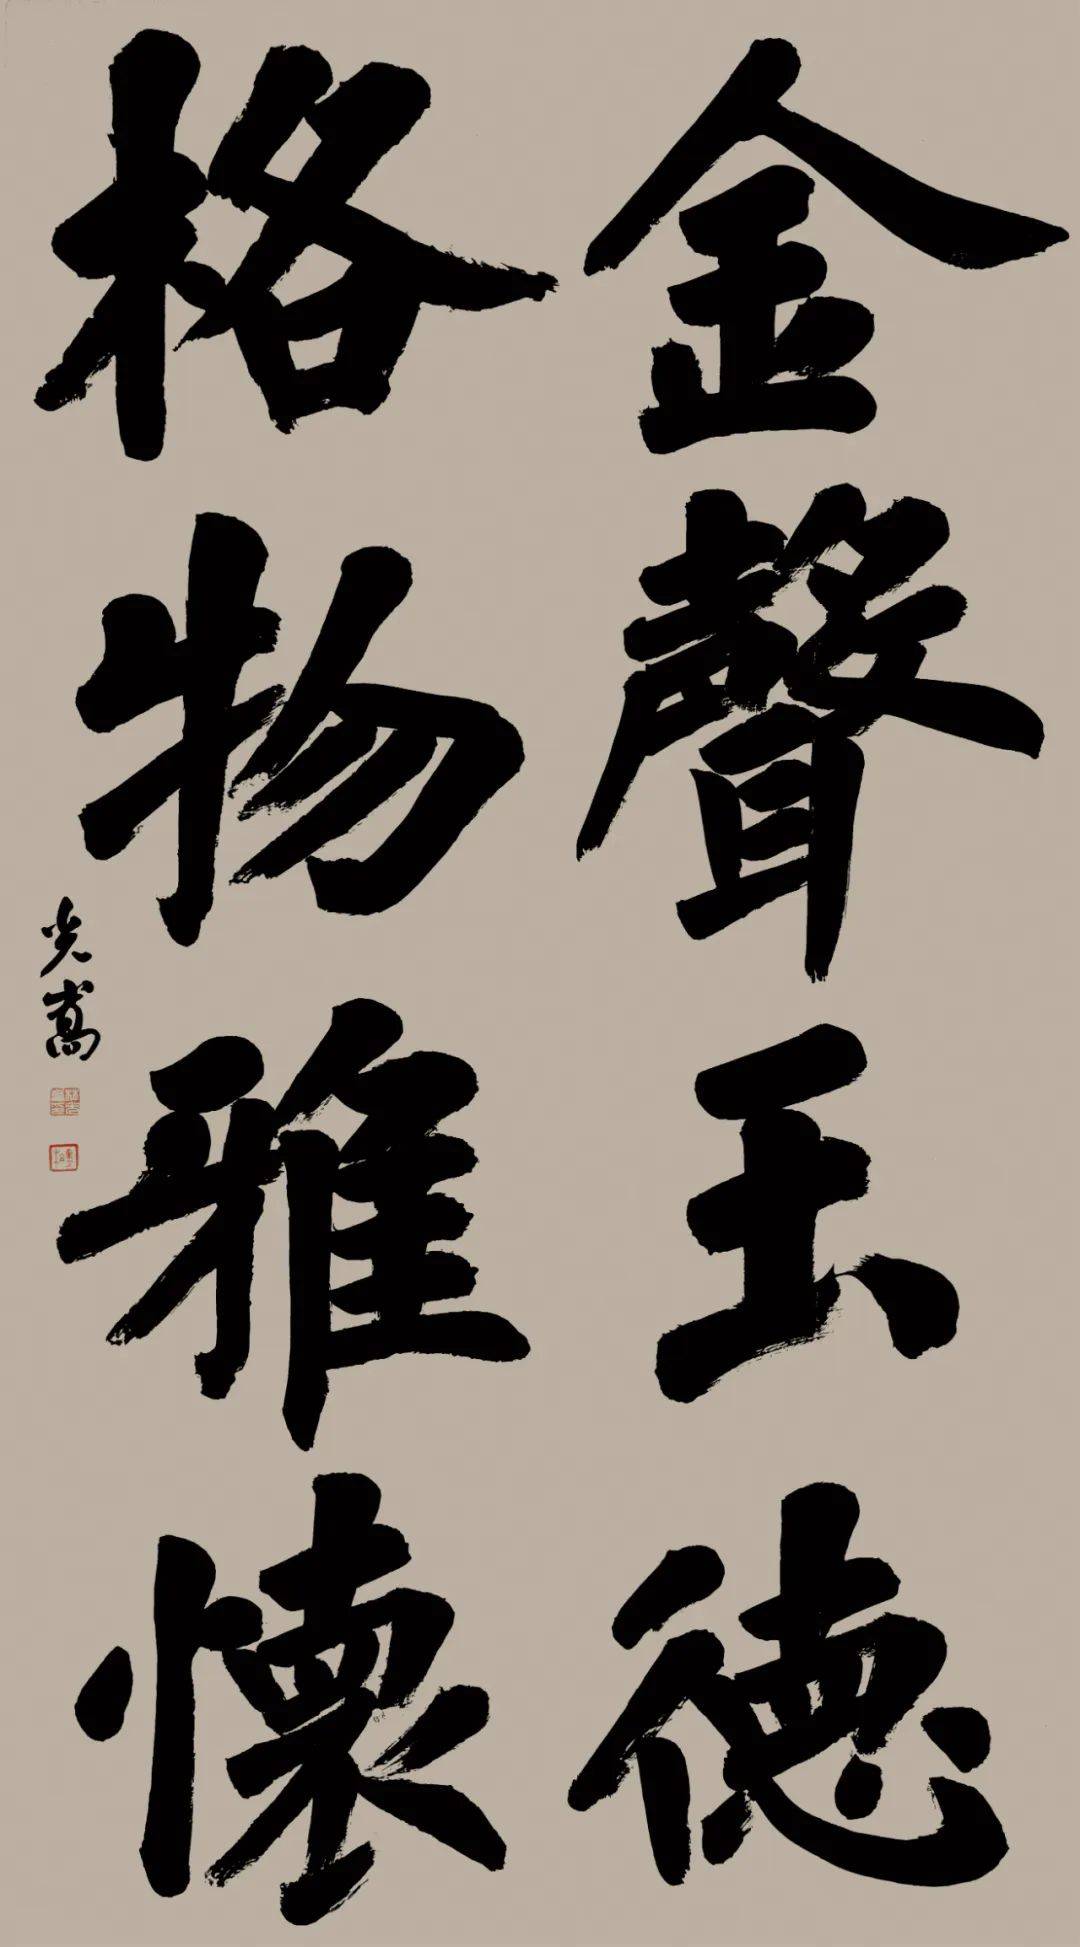 金聲玉德
格物雅懷
光嵩